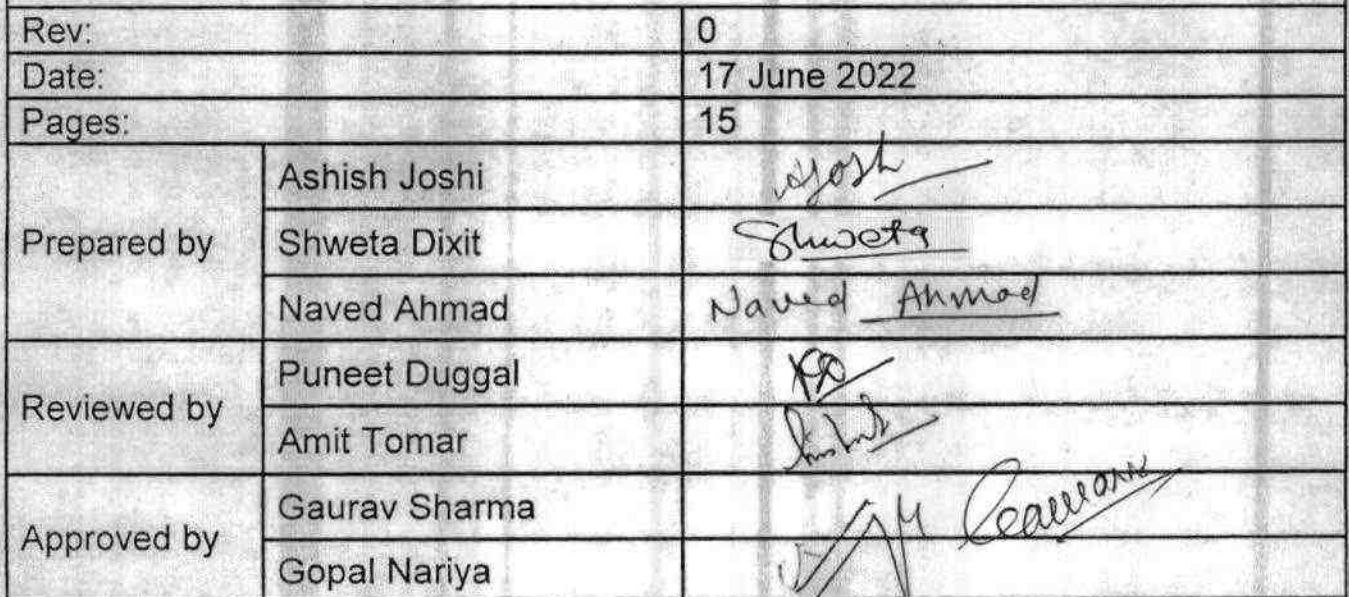 Rev: 0
Date: 17 June 2022
Pages: 15
Prepared by
Ashish Joshi
Shweta Dixit Shweta
Naved Ahmad Naved Ahmad
Reviewed by
Puneet Duggal
Amit Tomar
Approved by
Gaurav Sharma
Gopal Nariya